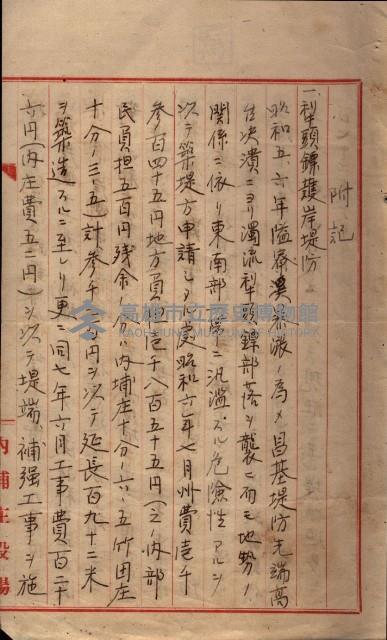 附記
一、犁頭鏢護岸堤防
昭和五、六年隘寮溪ノ氾濫ノ為メ昌基堤防先端高
台決潰ニヨリ濁流犁頭鏢部落ヲ襲ヒ而モ地勢ノ
関係ニ依リ東南部一帯ニ汎濫スル危険性アルヲ
以テ築堤方申請シタル處昭和六年七月州費壱千
参百四十五円地方民負担壱千八百五十五円(之ノ内部
民負担五百円残余ノ内埔庄十分ノ六、五竹田庄
十分ノ三、五)計参千 円ヲ以テ延長百九十二米
ヲ築造スルニ至レリ更ニ同七年六月工事費百二十
六円(内庄費五二円)ヲ以テ堤端ノ補強工事ヲ施
内埔庄役場
高雄市立歷史博物館
KAOHSIUNG MUSEUM OF HISTORY